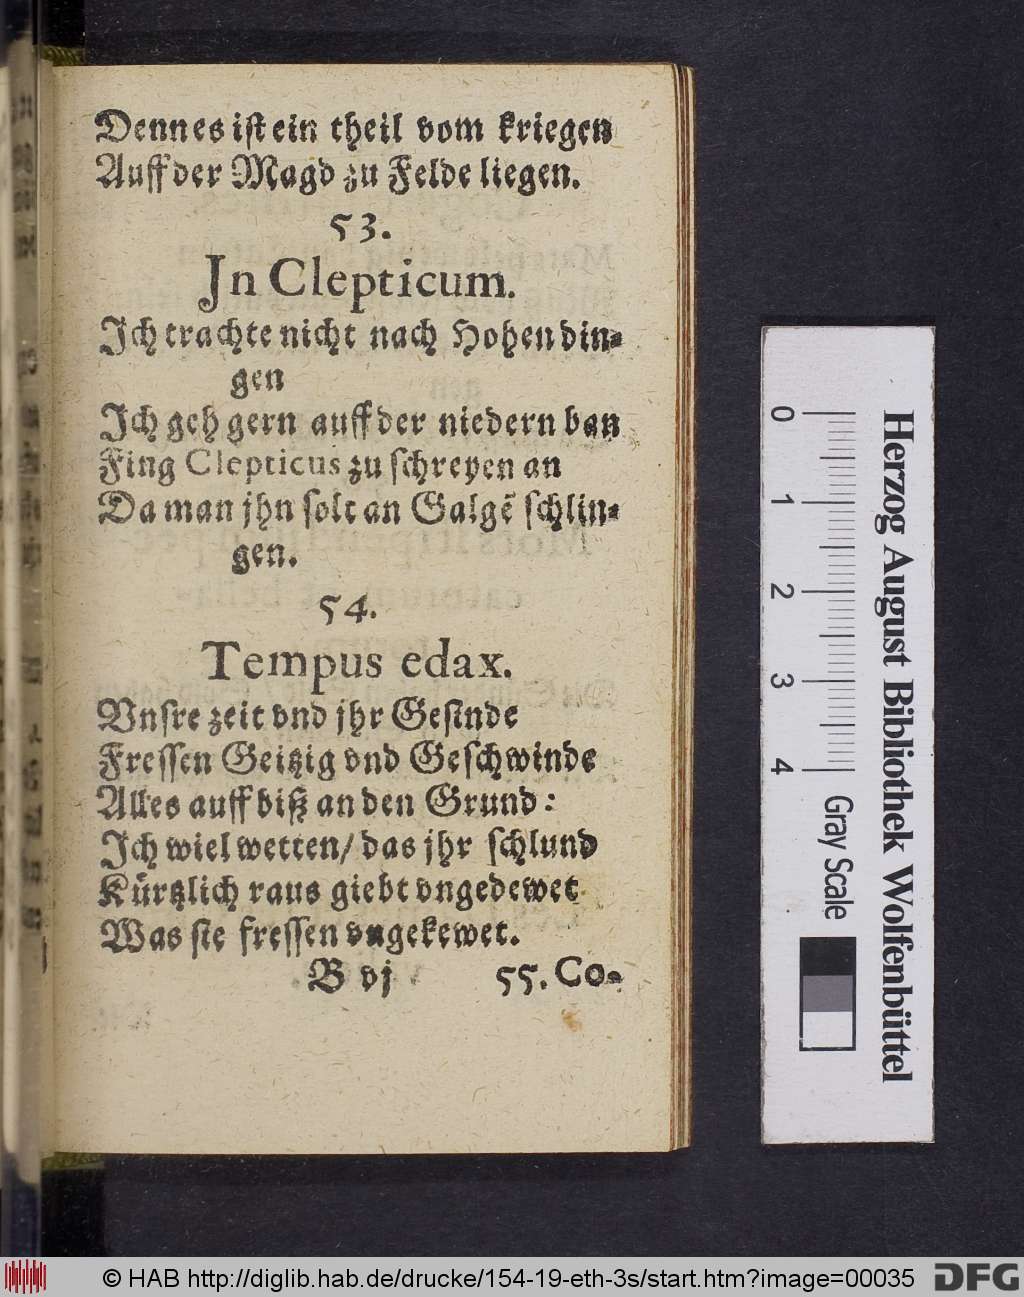 Dennes ist ein theil vom kriegen
Auff der Magd zu Felde liegen.
53.
Jn Clepticum.
Ich trachte nicht nach Hohen din-
gen
Ich geh gern auff der niedern ban
Fing Clepticus zu schreyen an
Da man jhn solt an Galgẽ schlin-
gen.
54.
Tempus edax.
Vnsre zeit vnd jhr Gesinde
Fressen Geitzig vnd Geschwinde
Alles auff biß an den Grund:
Ich wiel wetten/ das jhr schlund
Kürtzlich raus giebt vngedewet
Was sie fressen vngekewet.
B vj 55. Co-
Herzog August Bibliothek Wolfenbüttel
0 1 2 3 4 Gray Scale
© HAB http://diglib.hab.de/drucke/154-19-eth-3s/start.htm?image=00035 DFG